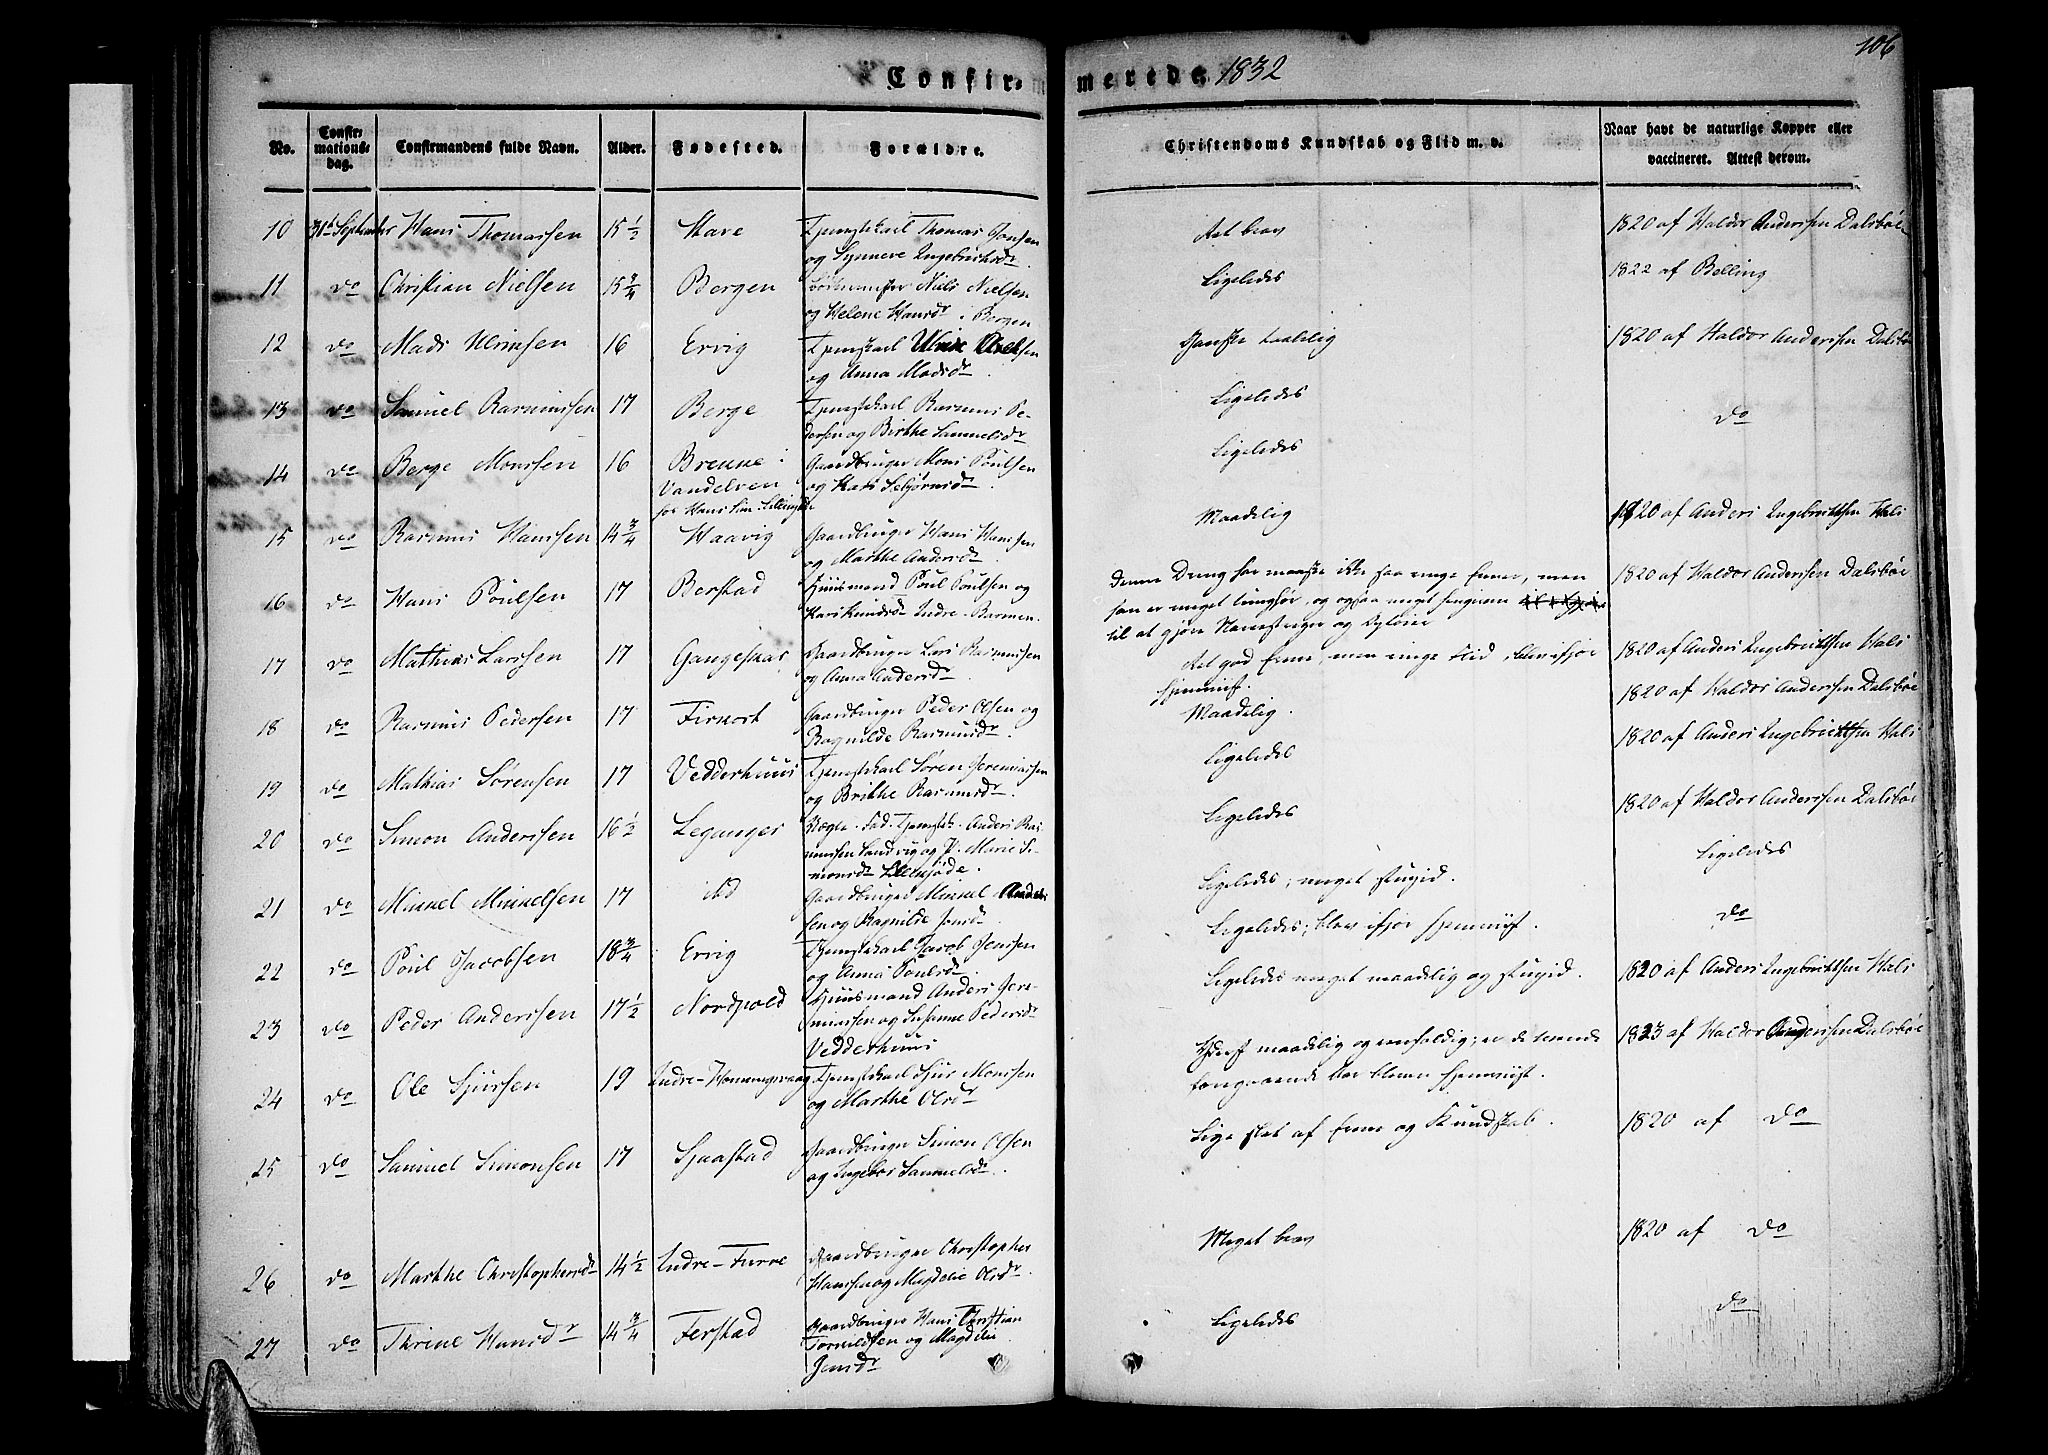 106
Confirmerede 1832
No.
Confirmationsdag.
Confirmandens fulde Navn.
Alder.
Fødested.
Forældre.
Christendoms Kundskab og Flid m. v.
Naar havt de naturlige Kopper eller
vaccineret. Attest derom.
10 September Hans Thomassen 15 1/2 Stave Tjenestekarl Thomas Jonsen
og Synneve Ingebrichtsdr. Ret brav 1820 af Haldor Anderssen Dalsbøe
11 do Christian Nielsen 15 3/4 Bergen Niels Nielsen
og Helene Hansdr i Bergen Ligeledes 1822 af Belling
12 do Mads Ulrissen 16 Ervig Tjenestekarl
og Anna Madsdr. Ganske taalelig 1820 af Haldor Anderssen Dalsbøe
13 do Samuel Rasmussen 17 Berge Tjenestekarl Rasmus Pe-
dersen og Birthe Samuelsdr Ligeledes do
14 do Berge Monssen 16 Brenne i
Vandelven Gaardbruger Mons Poulsen
og Kari Ligeledes
15 do Rasmus Hanssen 14 3/4 Haavig Gaardbruger Hans Hanssen
og Marthe Andersdr Maadelig 1820 af Anders Ingebrichtsen Hals
16 do Hans Poulsen 17 Berstad Huusmand Poul Poulsen og
Kari Knudsdr Indre-Barmen. Denne Dreng har maaske ikke saa ringe Evner, men
han er meget tunghør, og ogsaa meget
til at gjøre 1820 af Haldor Anderssen Dalsbøe
17 do Mathias Larssen 17 Gangeskar Gaardbruger Lars Rasmussen
og Anna Andersdr. Ret god Evne, men ringe Flid, blev ifjor
hjemviist. 1820 af Anders Ingebrichtsen Hals
18 do Rasmus Pedersen 17 Gaardbruger Peder Olsen og
Ragnilde Rasmusdr. Maadelig. 1820 af Haldor Anderssen Dalsbøe
19 do Mathias Sørensen 17 Vedderhuus Tjenestekarl Søren Jeremiassen
og Brithe Rasmusdr. Ligeledes 1820 af Anders Ingebrichtsen Hals
20 do Simon Anderssen 16 1/2 Leganger Anders Ras-
mussen Sandvig og P. Marie Si-
monsdr Ligeledes 1820 af Haldor Anderssen Dalsbøe
21 do 17 ibd Gaardbruger
sen og Ragnilde Jensdr. Ligeledes; meget stupid. Ligeledes
22 do Poul Jacobsen 18 3/4 Ervig Tjenestekarl Jacob Jenssen
og Anna Poulsdr Ligeledes; blev ifjor hjemviist. do
23 do Peder Anderssen 17 1/2 Nordpold Huusmand Anders Jere-
miassen og Susanne Pedersdr
Vedderhuus Ligeledes meget maadelig og stupid. 1820 af Anders Ingebrichtsen Hals
24 do Ole Sjurssen 19 Tjenestekarl Sjur Monssen
og Marthe Olsdr Yderst maadelig og eenfoldig; er de tvende
foregaaende Aar bleven hjemviist. 1823 af Haldor Anderssen Dalsbøe
25 do Samuel Simonsen 17 Sjaastad Gaardbruger Simon Olsen
og Ingebor Samuelsdr. Lige slet af Evne og Kundskab. 1820 af do
26 do Marthe Christophersdr 14 1/2 Indre-Furre Gaardbruger Christopher
Hanssen og Magdele Olsdr. Meget brav 1820 af do
27 do Thrine Hansdr 14 3/4 Ferstad Gaardbruger Hans Christian
Tormildsen og Magdele
Jensdr Ligeledes do